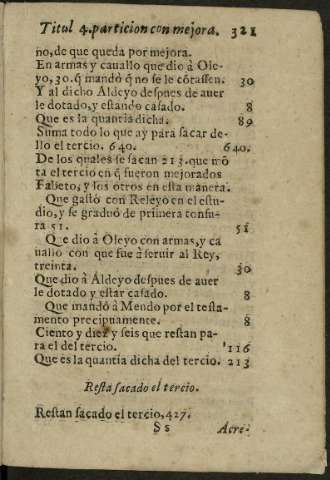 Titul 4. particion con mejora. 321
ño, de que queda por mejora.
En armas y cauallo que dio à Ole-
yo, 30. q̃ mandó q̃ no se le cõtassen. 30
Y al dicho Aldeyo despues de auer
le dotado, y estando casado. 8
Que es la quantia dicha. 89
Suma todo lo que ay para sacar de-
llo el tercio. 640. 640.
De los quales se sacan 213. que mõ
ta el tercio en q̃ fueron mejorados
Falieto, y los otros en esta manera.
Que gastò con Releyo en el estu-
dio, y se graduó de primera tonsu-
ra 51. 51
Que dio à Oleyo con armas, y ca
uallo con que fue à seruir al Rey,
treinta. 30
Que dio à Aldeyo despues de auer
le dotado y estar casado. 8
Que mandó à Mendo por el testa-
mento precipuamente. 8
Ciento y diez y seis que restan pa-
ra el del tercio. 116
Que es la quantia dicha del tercio. 213
Resta sacado el tercio.
Restan sacado el tercio, 427.
Ss Acre-